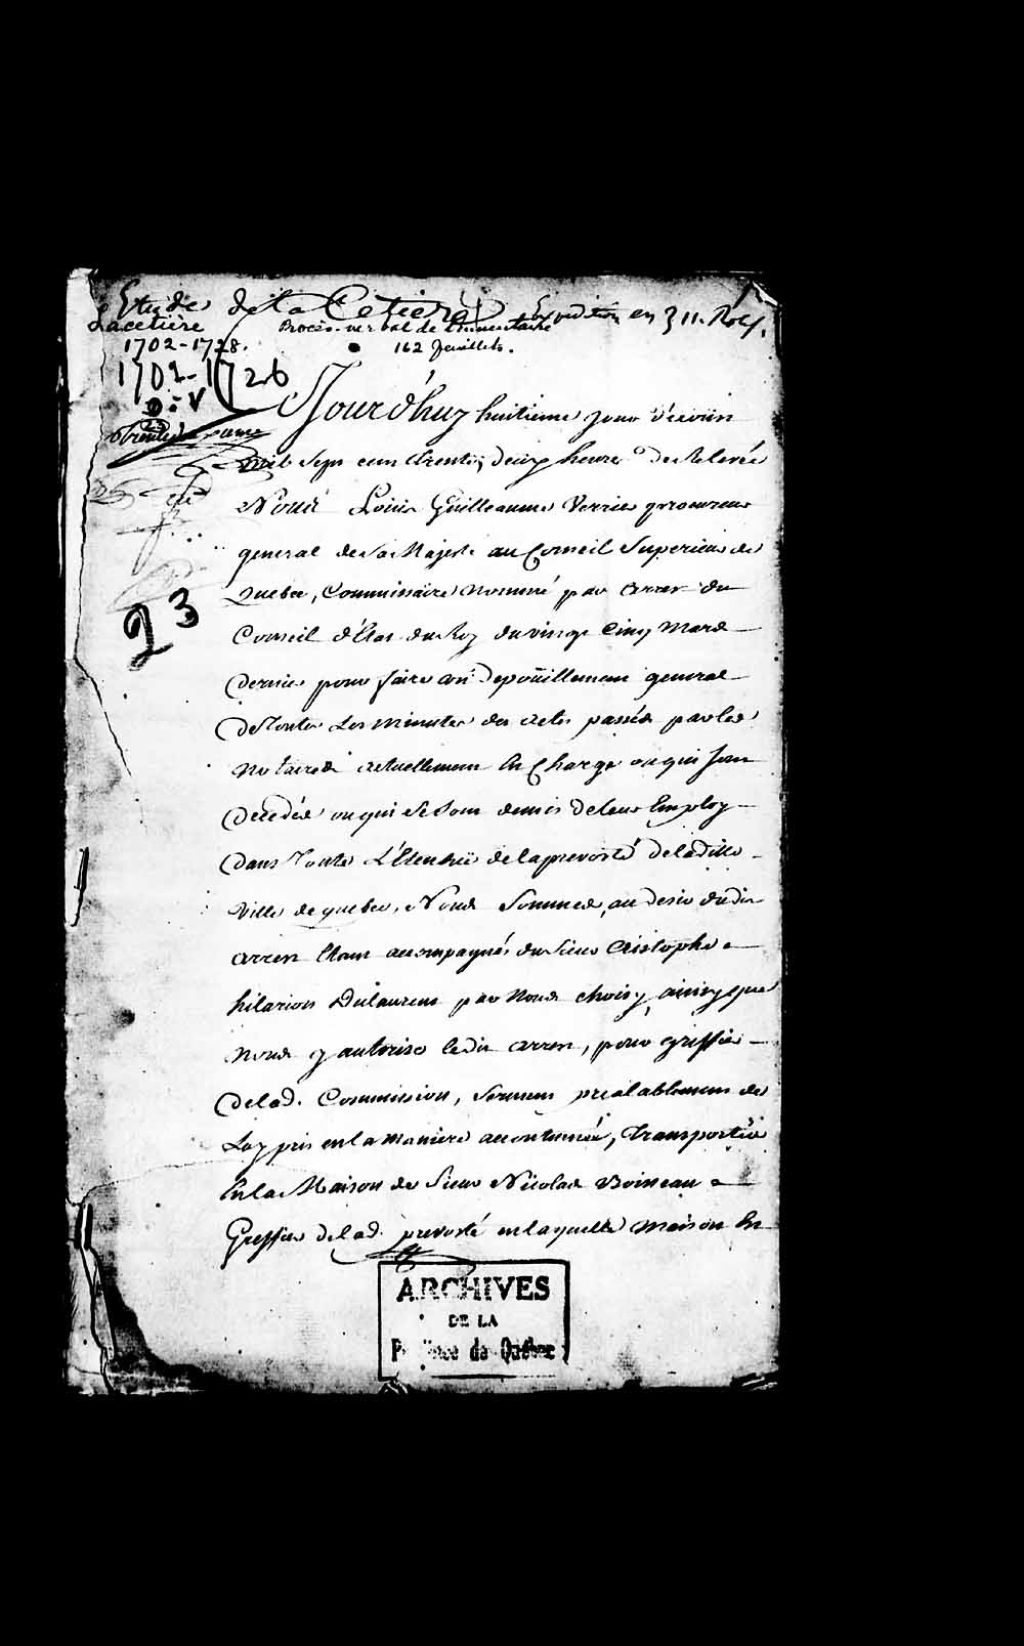 Etude de la Cetiera Expedition en 311. Rolf.
Lacetière Procès-verbal de l'Inventaire
1702-1728. 162 feuillets.
1702-1726
D: V
Jourd'huy huitieme jour de Juin
mil sept cent trente, deux heures de Relevée
Nous Louis Guilleaume Verrier procureur
general de Sa Majesté au Conseil Superieur de
Quebec, Commissaire nommé par arrest du
Conseil d'Etat du Roy du vingt Cinq Mars
dernier pour faire un depoüillement general
de Toutes Les minutes des actes passés par les
notaires actuellement En Charge ou qui sont
decedés ou qui se sont demis de leur Employ
dans Toute L'Etenduë de la prevosté de ladite
Ville de quebec, Nous Sommes, au desir dudit
arrest Etant accompagnés du Sieur Cristophe
hilarion Dulaurent par Nous choisy, ainsy que
Nous y autorise ledit arrest, pour greffier
de lad. Commission, Serment prealablement de
Luy pris en la maniere accoutumée, Transportés
En la Maison de Sieur Nicolas Boineau
Greffier de lad. prevosté en laquelle maison En
23
ARCHIVES
DE LA
Province de Québec